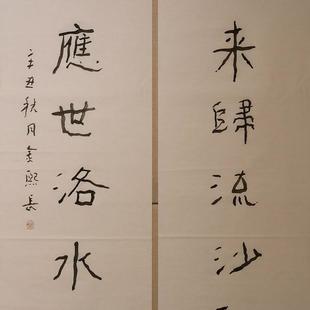 来歸流沙
應世洛水
辛丑秋月金熙長